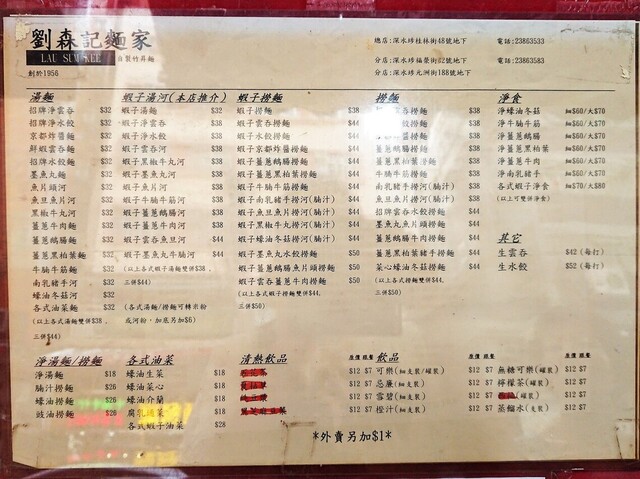 劉森記麵家
LAU SUM KEE 自製竹昇麵
創於1956
總店:深水埗桂林街48號地下 電話:23863533
分店:深水埗福榮街82號地下 電話:23863583
分店:深水埗元洲街188號地下
湯麵
招牌淨雲吞 $32
招牌淨水餃 $32
京都炸醬麵 $32
鮮蝦雲吞麵 $32
招牌水餃麵 $32
墨魚丸麵 $32
魚片頭河 $32
魚旦魚片河 $32
黑椒牛丸河 $32
薑蔥牛肉麵 $32
薑蔥鵝腸麵 $32
薑蔥黑柏葉麵 $32
牛腩牛筋麵 $32
南乳豬手河 $32
蠔油冬菇河 $32
各式油菜麵 $32
(以上各式麵雙併$38,
三併$44)
蝦子湯河(本店推介)
蝦子湯麵 $32
蝦子淨雲吞 $36
蝦子淨水餃 $36
蝦子雲吞河 $38
蝦子黑椒牛丸河 $38
蝦子墨魚丸河 $38
蝦子魚片河 $38
蝦子牛腩牛筋河 $38
蝦子薑蔥鵝腸河 $38
蝦子薑蔥牛肉河 $38
蝦子雲吞魚旦河 $44
蝦子墨魚丸牛腩河 $44
(以上各式蝦子湯麵雙併$38,
三併$44)
(各式湯麵/撈麵可轉米粉
或河粉,加底另加$6)
蝦子撈麵
蝦子撈麵 $38
蝦子雲吞撈麵 $44
蝦子水餃撈麵 $44
蝦子京都炸醬麵 $44
蝦子薑蔥鵝腸撈麵 $44
蝦子薑蔥黑柏撈麵 $44
蝦子牛腩牛筋撈麵 $44
蝦子南乳豬手撈河(腩汁) $44
蝦子魚旦魚片撈河(腩汁) $44
蝦子墨魚丸撈河(腩汁) $44
蝦子蠔油冬菇撈河(腩汁) $44
蝦子墨魚丸水餃撈麵 $50
蝦子薑蔥鵝腸魚片頭撈麵 $50
蝦子雲吞薑蔥牛肉撈麵 $50
(以上各式蝦子撈麵雙併$44,
三併$50)
撈麵
$38
$38
$38
薑蔥鵝腸撈麵 $38
薑蔥黑柏撈麵 $38
牛腩牛筋撈麵 $38
南乳豬手撈河(腩汁) $38
魚旦魚片撈河(腩汁) $38
招牌雲吞水餃撈麵 $44
墨魚丸魚片撈麵 $44
牛腩薑蔥鵝腸撈麵 $44
薑蔥黑柏牛肉撈麵 $44
菜心蠔油冬菇撈麵 $44
(以上各式撈麵雙併$44,
三併$50)
淨食
淨蠔油冬菇 細$60/大$70
淨牛腩牛筋 細$60/大$70
淨薑蔥鵝腸 細$60/大$70
淨薑蔥黑柏葉 細$60/大$70
淨薑蔥牛肉 細$60/大$70
淨南乳豬手 細$60/大$70
各式蝦子淨食 細$70/大$80
(以上可雙併淨食)
其它
生雲吞 $42(每打)
生水餃 $52(每打)
淨湯麵/撈麵
淨湯麵 $18
腩汁撈麵 $26
蠔油撈麵 $26
豉油撈麵 $26
各式油菜
蠔油生菜 $18
蠔油菜心 $18
蠔油介蘭 $18
腐乳通菜 $18
各式蝦子油菜 $28
清熱飲品 原價 跟餐
$12 $7
$12 $7
$12 $7
$12 $7
飲品 原價 跟餐
可樂(細支裝/罐裝) $12 $7
忌廉(細支裝) $12 $7
雪碧(細支裝) $12 $7
橙汁(細支裝) $12 $7
原價 跟餐
無糖可樂(罐裝) $12 $7
檸檬茶(罐裝) $12 $7
(罐裝) $12 $7
蒸餾水(支裝) $12 $7
*外賣另加$1*